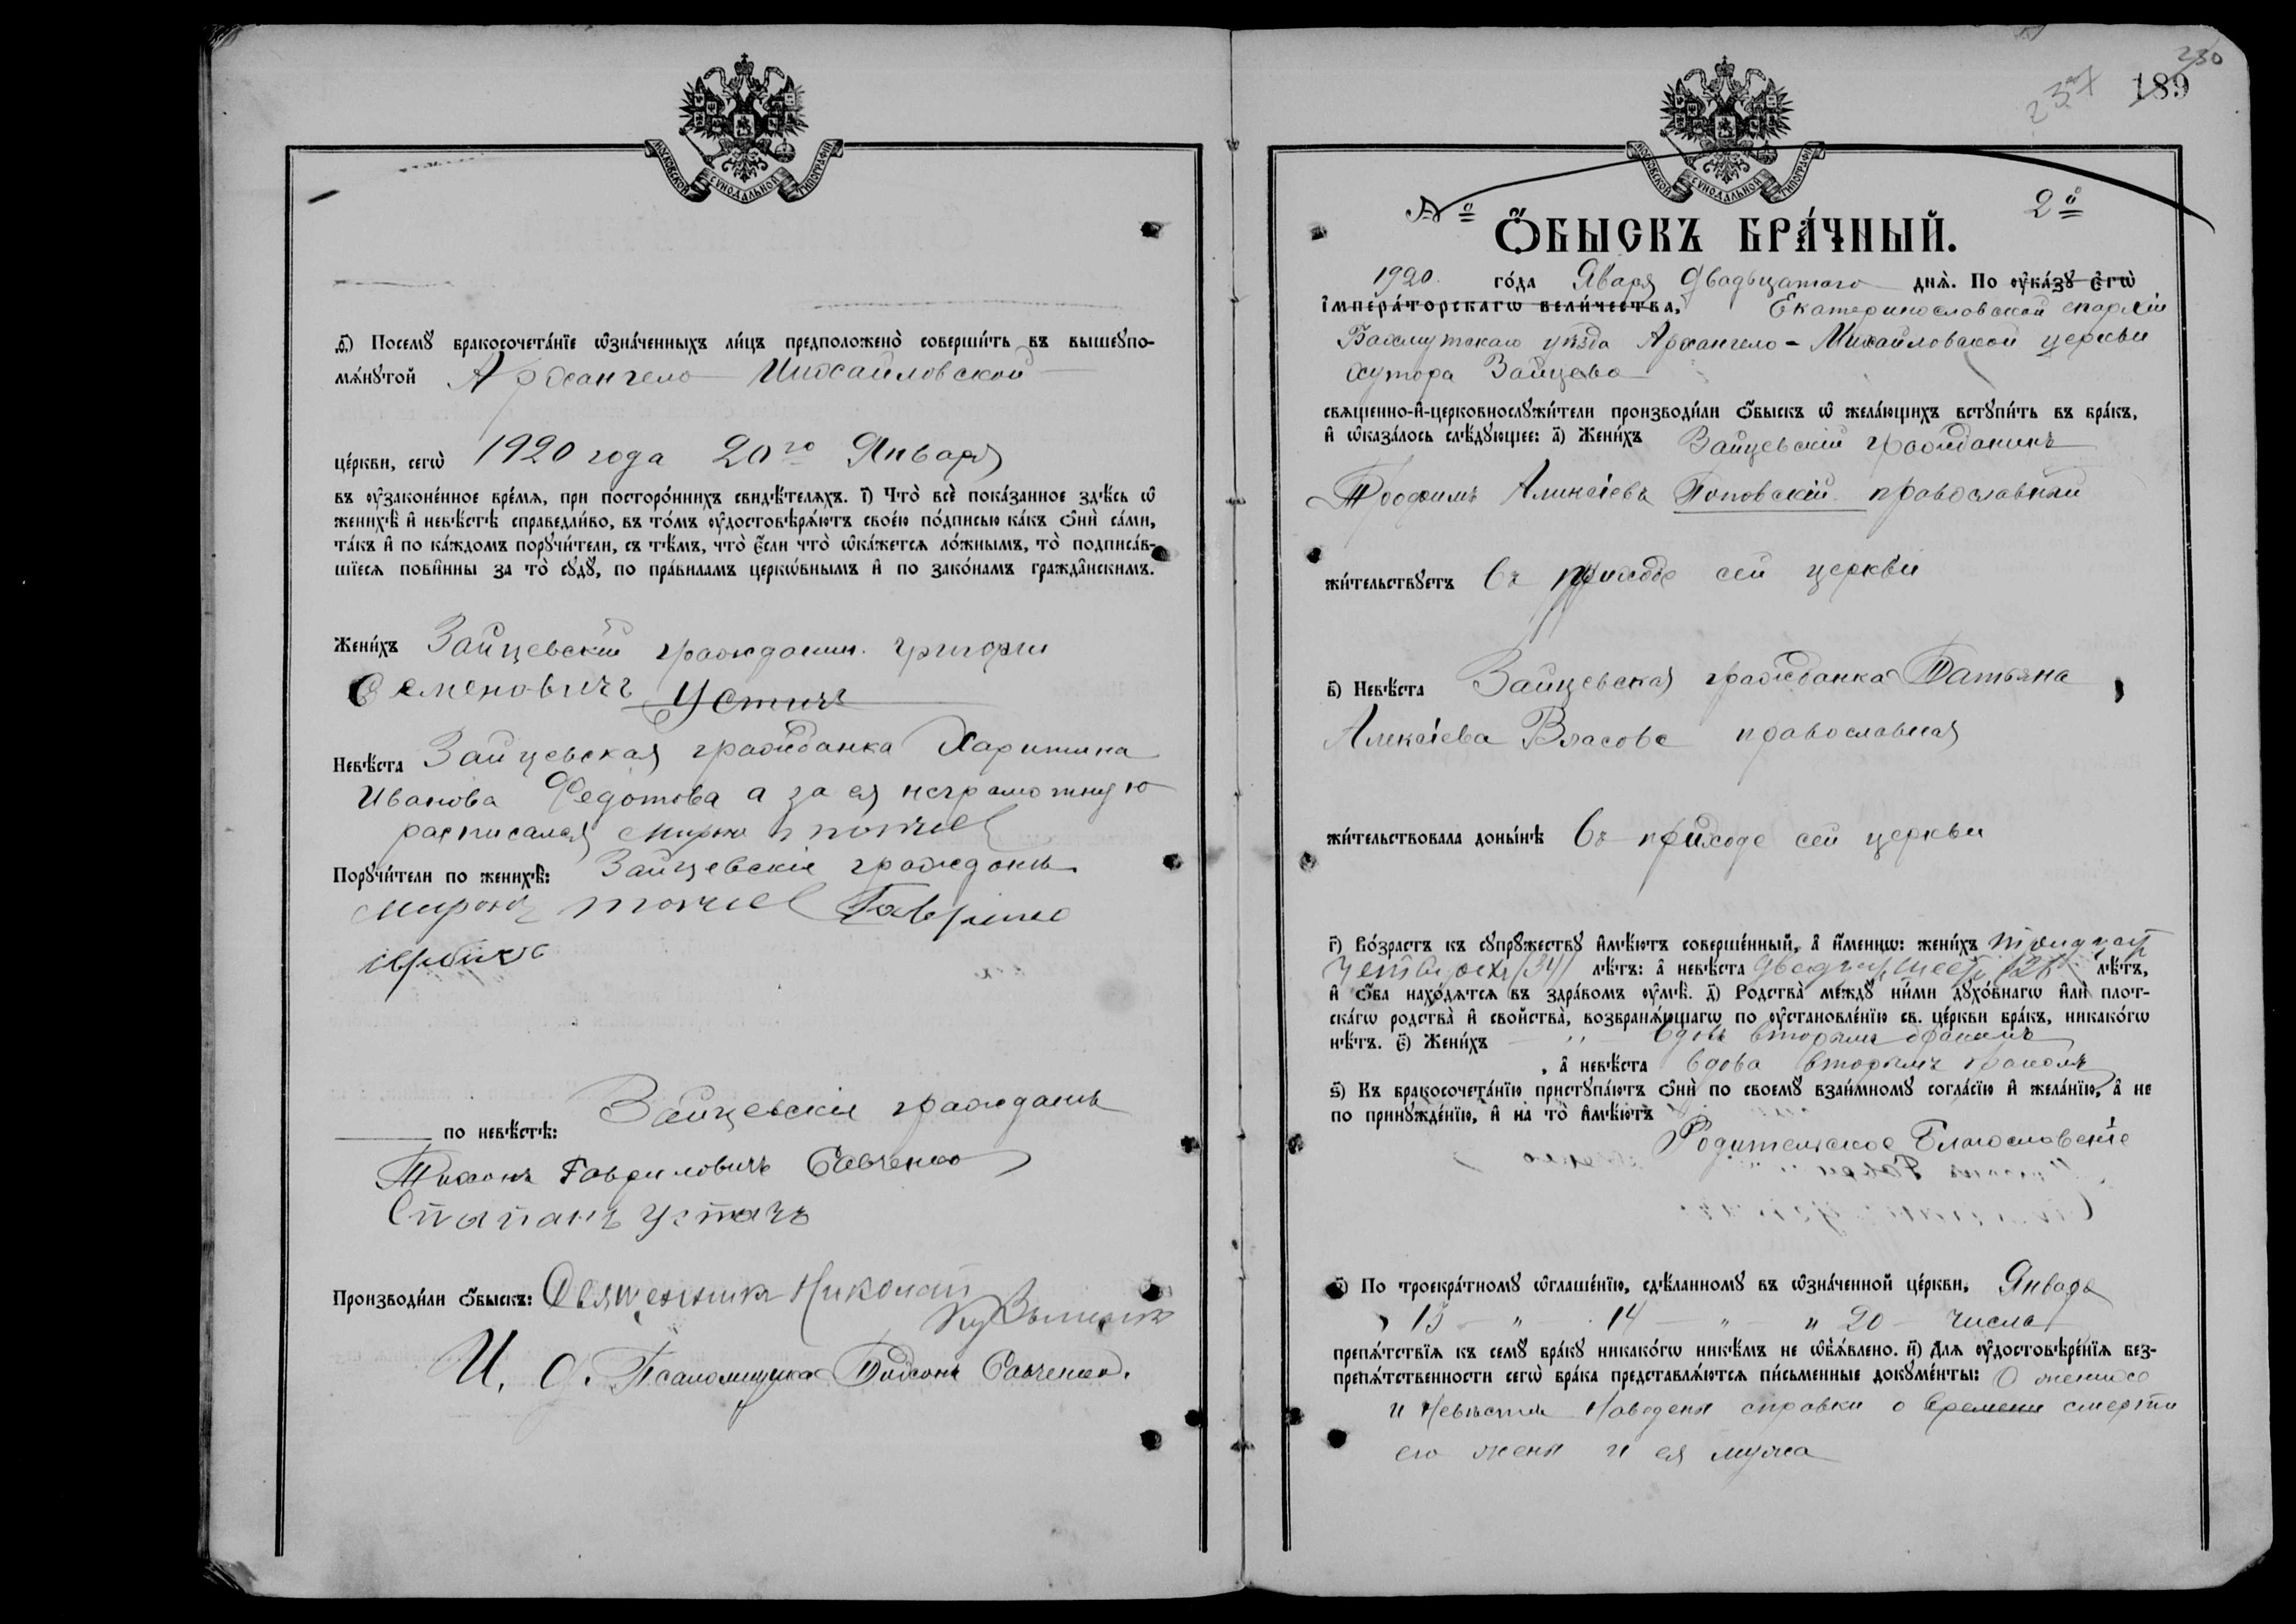 МОСКОВСКОЙ СѴНОДАЛЬНОЙ ТИПОГРАФІИ
ѳ҃) Посемꙋ̀ бракосочета́нїе ѡ҆зна́ченныхъ ли́цъ предположено̀ соверши́ть въ вышеꙋпо-
мѧ́нꙋтой Архангело Михайловской
це́ркви, сегѡ̀ 1920 года 20го Января
въ ᲂу҆законе́нное вре́мѧ, при посторо́ннихъ свидѣ́телѧхъ. і҃) Что̀ всѐ пока́занное здѣ́сь ѡ҆
женихѣ̀ и҆ невѣ́стѣ справедли́во, въ то́мъ ᲂу҆достовѣрѧ́ютъ свое́ю по́дписью ка́къ ѻ҆нѝ са́ми,
та́къ и҆ по ка́ждомъ порꙋчи́тели, съ тѣ́мъ, что̀ є҆́сли что̀ ѡ҆ка́жетсѧ ло́жнымъ, то̀ подписа́в-
шїесѧ пови́нны за то̀ сꙋдꙋ̀, по пра́виламъ церкѡ́внымъ и҆ по зако́намъ гражда́нскимъ.
Жени́хъ Зайцевскій гражданин. Григорій
Семеновичъ Устичъ
Невѣ́ста Зайцевская гражданка Харитина
Иванова Федотова а за ея неграмотную
расписался Миронъ
Порꙋчи́тели по женихѣ̀: Зайцевскіе граждане
Миронъ Гаврило
по невѣ́стѣ: Зайцевскіе граждане
Тихонъ Гавриловичъ Савченко
Степанъ Устичъ
Производи́ли ѻ҆́быскъ: Священникъ Николай
И. д. Псаломщика Тихонъ Савченко.
230
237
189
МОСКОВСКОЙ СѴНОДАЛЬНОЙ ТИПОГРАФІИ
№ 2й
ѺБЫСКЪ БРА́ЧНЫЙ.
1920 го́да Яваря Двадцатаго днѧ̀. По ᲂу҆ка́зꙋ є҆гѡ̀
і҆мпера́торскагѡ вели́чества, Екатеринославской епархіи
Бахмутскаго уѣзда Архангело-Михайловской церкви
хутора Зайцева
свѧще́нно-и҆-церковнослꙋжи́тели производи́ли ѻ҆́быскъ ѡ҆ жела́ющихъ встꙋпи́ть въ бра́къ,
и҆ ѡ҆каза́лось слѣ́дꙋющее: а҃) Жени́хъ Зайцевскій гражданинъ
Трофимъ Алексѣевъ Поповскій православный
жи́тельствꙋетъ въ приходѣ сей церкви
в҃) Невѣ́ста Зайцевская гражданка Татьяна
Алексѣева Власова православная
жи́тельствовала доны́нѣ въ приходе сей церкви
г҃) Во́зрастъ къ сꙋпрꙋ́жествꙋ и҆мѣ́ютъ соверше́нный, а҆ и҆́меннѡ: жени́хъ тридцат
четырехъ /34/ лѣ́тъ: а҆ невѣ́ста двадцат шест /26/ лѣ́тъ,
и҆ ѻ҆́ба нахо́дѧтсѧ въ здра́вомъ ᲂу҆мѣ̀. д҃) Родства̀ междꙋ̀ ни́ми дꙋхо́внагѡ и҆лѝ плот-
ска́гѡ родства̀ и҆ сво́йства̀, возбранѧ́ющагѡ по ᲂу҆становле́нїю св. це́ркви бра́къ, никако́гѡ
нѣ́тъ. є҃) Жени́хъ „ вдовъ вторымъ бракомъ
, а҆ невѣ́ста вдова вторымъ бракомъ
ѕ҃) Къ бракосочета́нїю пристꙋпа́ютъ ѻ҆нѝ по своемꙋ̀ взаи́мномꙋ согла́сїю и҆ жела́нїю, а҆ не
по принꙋжде́нїю, и҆ на̀ то̀ и҆мѣ́ютъ
Родительское Благословеніе
з҃) По троекра́тномꙋ ѡ҆глаше́нїю, сдѣ́ланномꙋ въ ѡ҆зна́ченной це́ркви, Января
„ 14 „ „ 20 числа
препѧ́тствїѧ къ семꙋ̀ бра́кꙋ никако́гѡ никѣ́мъ не ѡ҆б̾ѧ́влено. и҃) Длѧ̀ ᲂу҆достовѣре́нїѧ без-
препѧ́тственности сегѡ̀ бра́ка представлѧ́ютсѧ пи́сьменные докꙋме́нты: О женихе
и Невѣстѣ наведены справки о времени смерти
его жены и ея мужа